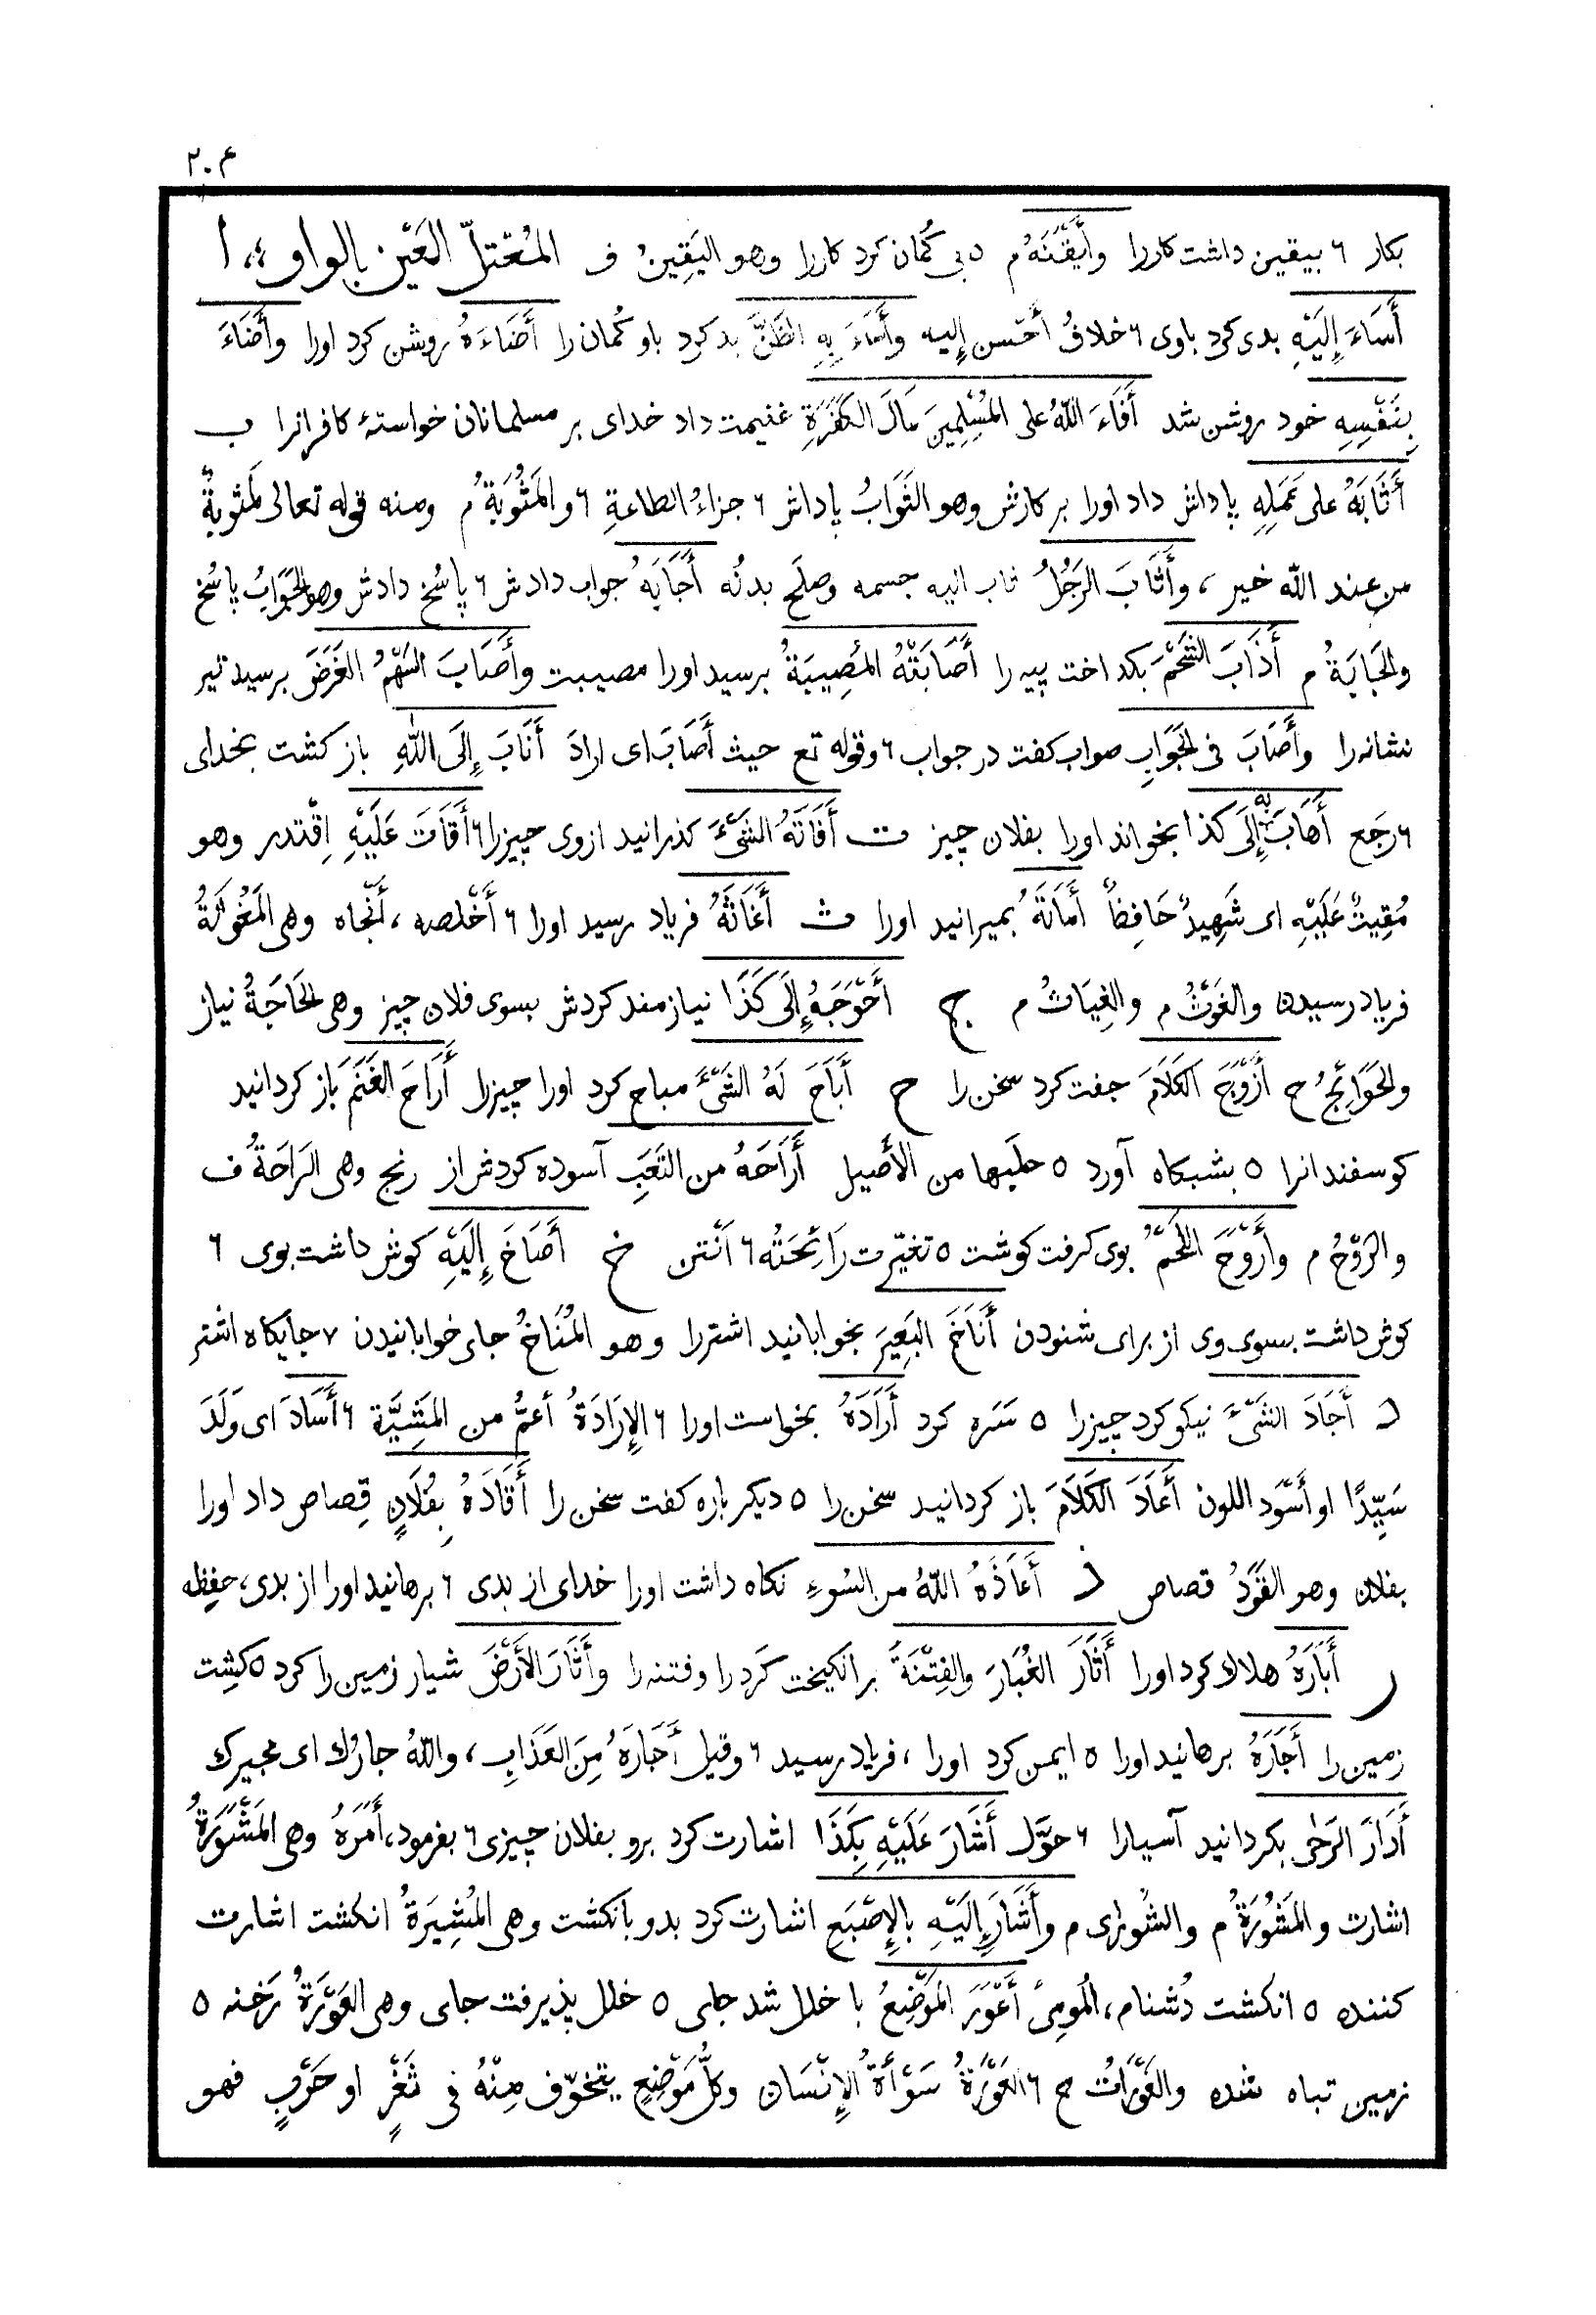 ۲۰۴
بکار ۶ بیقین داشت کار را وأَیْقَنَهُ م ۵ بی گُمان کرد کار را وهو الیَقِینُ ف المُعْتَلّ العَیْن بالواو ،، ا
أَسَاءَ إِلَیْهِ بدی کرد باوی ۶ خلافُ أَحْسن إلیه وأَسَاءَ بِهِ الظَنَّ بد کرد باو گُمان را أَضَاءَهُ روشن کرد اورا وأَضَاءَ
بِنَفْسِهِ خود روشن شد أَفَاءَ اللّٰهُ علی المُسْلِمِینَ مَالَ الکَفَرَةِ غنیمت داد خدای بر مسلمانان خواستهٔ کافرانرا ب
أَثَابَهُ علی عَمَلِهِ پاداش داد اورا بر کارش وهو الثَوَابُ پاداش ۶ جزاءُ الطاعةِ ۶ والمَثُوبَةُ م ومنه قوله تعالی لَمَثوبةٌ
من عند اللّٰه خیر ، وأَثَابَ الرَجُلُ ثاب الیه جسمه وصلَح بدنُه أَجَابَهُ جواب دادش ۶ پاسُخ دادش وهو الجَوَابُ پاسُخ
والجَابَةُ م أَذَابَ الشَحْمَ بکداخت پیه را أَصَابَتْهُ المُصِیبَةُ برسید اورا مصیبت وأَصَابَ السَهْمُ الغَرَضَ برسید تیر
نشانه را وأَصَابَ فی الجَوَابِ صواب کفت در جواب ۶ وقوله تع حیث أَصَابَ ای ارادَ أَنَابَ إِلَی اللّٰهِ باز کشت بخدای
۶ رجَع أَهَابَ بِهِ إِلَی کذا بخواند اورا بفلان چیز ت أَفَاتَهُ الشَیْءَ کذرانید ازوی چیزرا ۶ أَقَاتَ عَلَیْهِ اِقْتدر وهو
مُقِیتٌ عَلَیْهِ ای شَهِیدٌ حَافِظاً أَمَاتَهُ بمیرانید اورا ث أَغَاثَهُ فریاد رسید اورا ۶ أَخْلصه ، أَنْجاه وهی المَغُوثَةُ
فریاد رسیدن والغَوْثُ م والغِیَاثُ م ج أَحْوَجَهُ إِلَی کَذَا نیازمند کردش بسوی فلان چیز وهی الحَاجَةُ نیاز
والحَوَائِجُ ج أَزْوَجَ الکَلَامَ جفت کرد سخن را ح أَبَاحَ لَهُ الشَیْءَ مباح کرد اورا چیزرا أَرَاحَ الغَنَمَ باز کردانید
کوسفندانرا ۵ بشبکاه آورد ۵ حلَبها من الأَصیل أَرَاحَهُ من التَعَبِ آسوده کردش از رنج وهی الرَاحَةُ ف
والرَوْحُ م وأَرْوَحَ اللَحْمُ بوی کرفت کوشت ۵ تغیّرت رَائِحَتُه ۶ أَنْتن خ أَصَاخَ إِلَیْهِ کوش داشت بوی ۶
کوش داشت بسوی وی از برای شنودن أَنَاخَ البَعِیرَ بخوابانید اشتررا وهو المُنَاخُ جای خوابانیدن ۷ جایکاه اشتر
د أَجَادَ الشَیْءَ نیکو کرد چیزرا ۵ سَره کرد أَرَادَهُ بخواست اورا ۶ الإِرَادَةُ أعمُّ من المَشِیَّة ۶ أَسَادَ ای وَلَدَ
سَیِّدًا او أَسْوَد اللون أَعَادَ الکَلَامَ باز کردانید سخن را ۵ دیکر باره کفت سخن را أَقَادَهُ بِفُلَانٍ قِصاص داد اورا
بفلان وهو القَوَدُ قصاص ذ أَعَاذَهُ اللّٰهُ من السُوءِ نکاه داشت اورا خدای از بدی ۶ برهانید اورا از بدی، حفِظه
ر أَبَارَهُ هلاك کرد اورا أَثَارَ الغُبَارَ والفِتْنَةَ برانکیخت کَرد را وفتنه را وأَثَارَ الأَرْضَ شیار زمین را کرد ۵ کشِت
زمین را أَجَارَهُ برهانید اورا ۵ ایمن کرد اورا ، فریاد رسید ۶ وقیل أَجَارَهُ مِنَ العَذَابِ ، واللّٰهُ جارك ای مجیرك
أَدَارَ الرَحٰی بکردانید آسیارا ۶ حوَّل أَشَارَ عَلَیْهِ بِکَذَا اشارت کرد برو بفلان چیزی ۶ بفرمود، أَمَرَهُ وهی المَشْوَرَةُ
اشارت والمَشُورَةُ م والشُورٰی م وأَشَارَ إِلَیْهِ بالإِصْبَعِ اشارت کرد بدو بانکشت وهی المُشِیرَةُ انکشت اشارت
کننده ۵ انکشت دُشنام ، المُومِئُ أَعْوَرَ المَوْضِعُ با خلل شد جای ۵ خلل پذیرفت جای وهی العَوْرَةُ رَخنه ۵
زمین تباه شده والعَوْرَاتُ ج ۶ العَوْرَةُ سَوْأَةُ الإِنْسَان وکلُّ مَوْضِعٍ یتخوّف مِنْهُ فی ثَغْرٍ او حَرْبٍ فهو